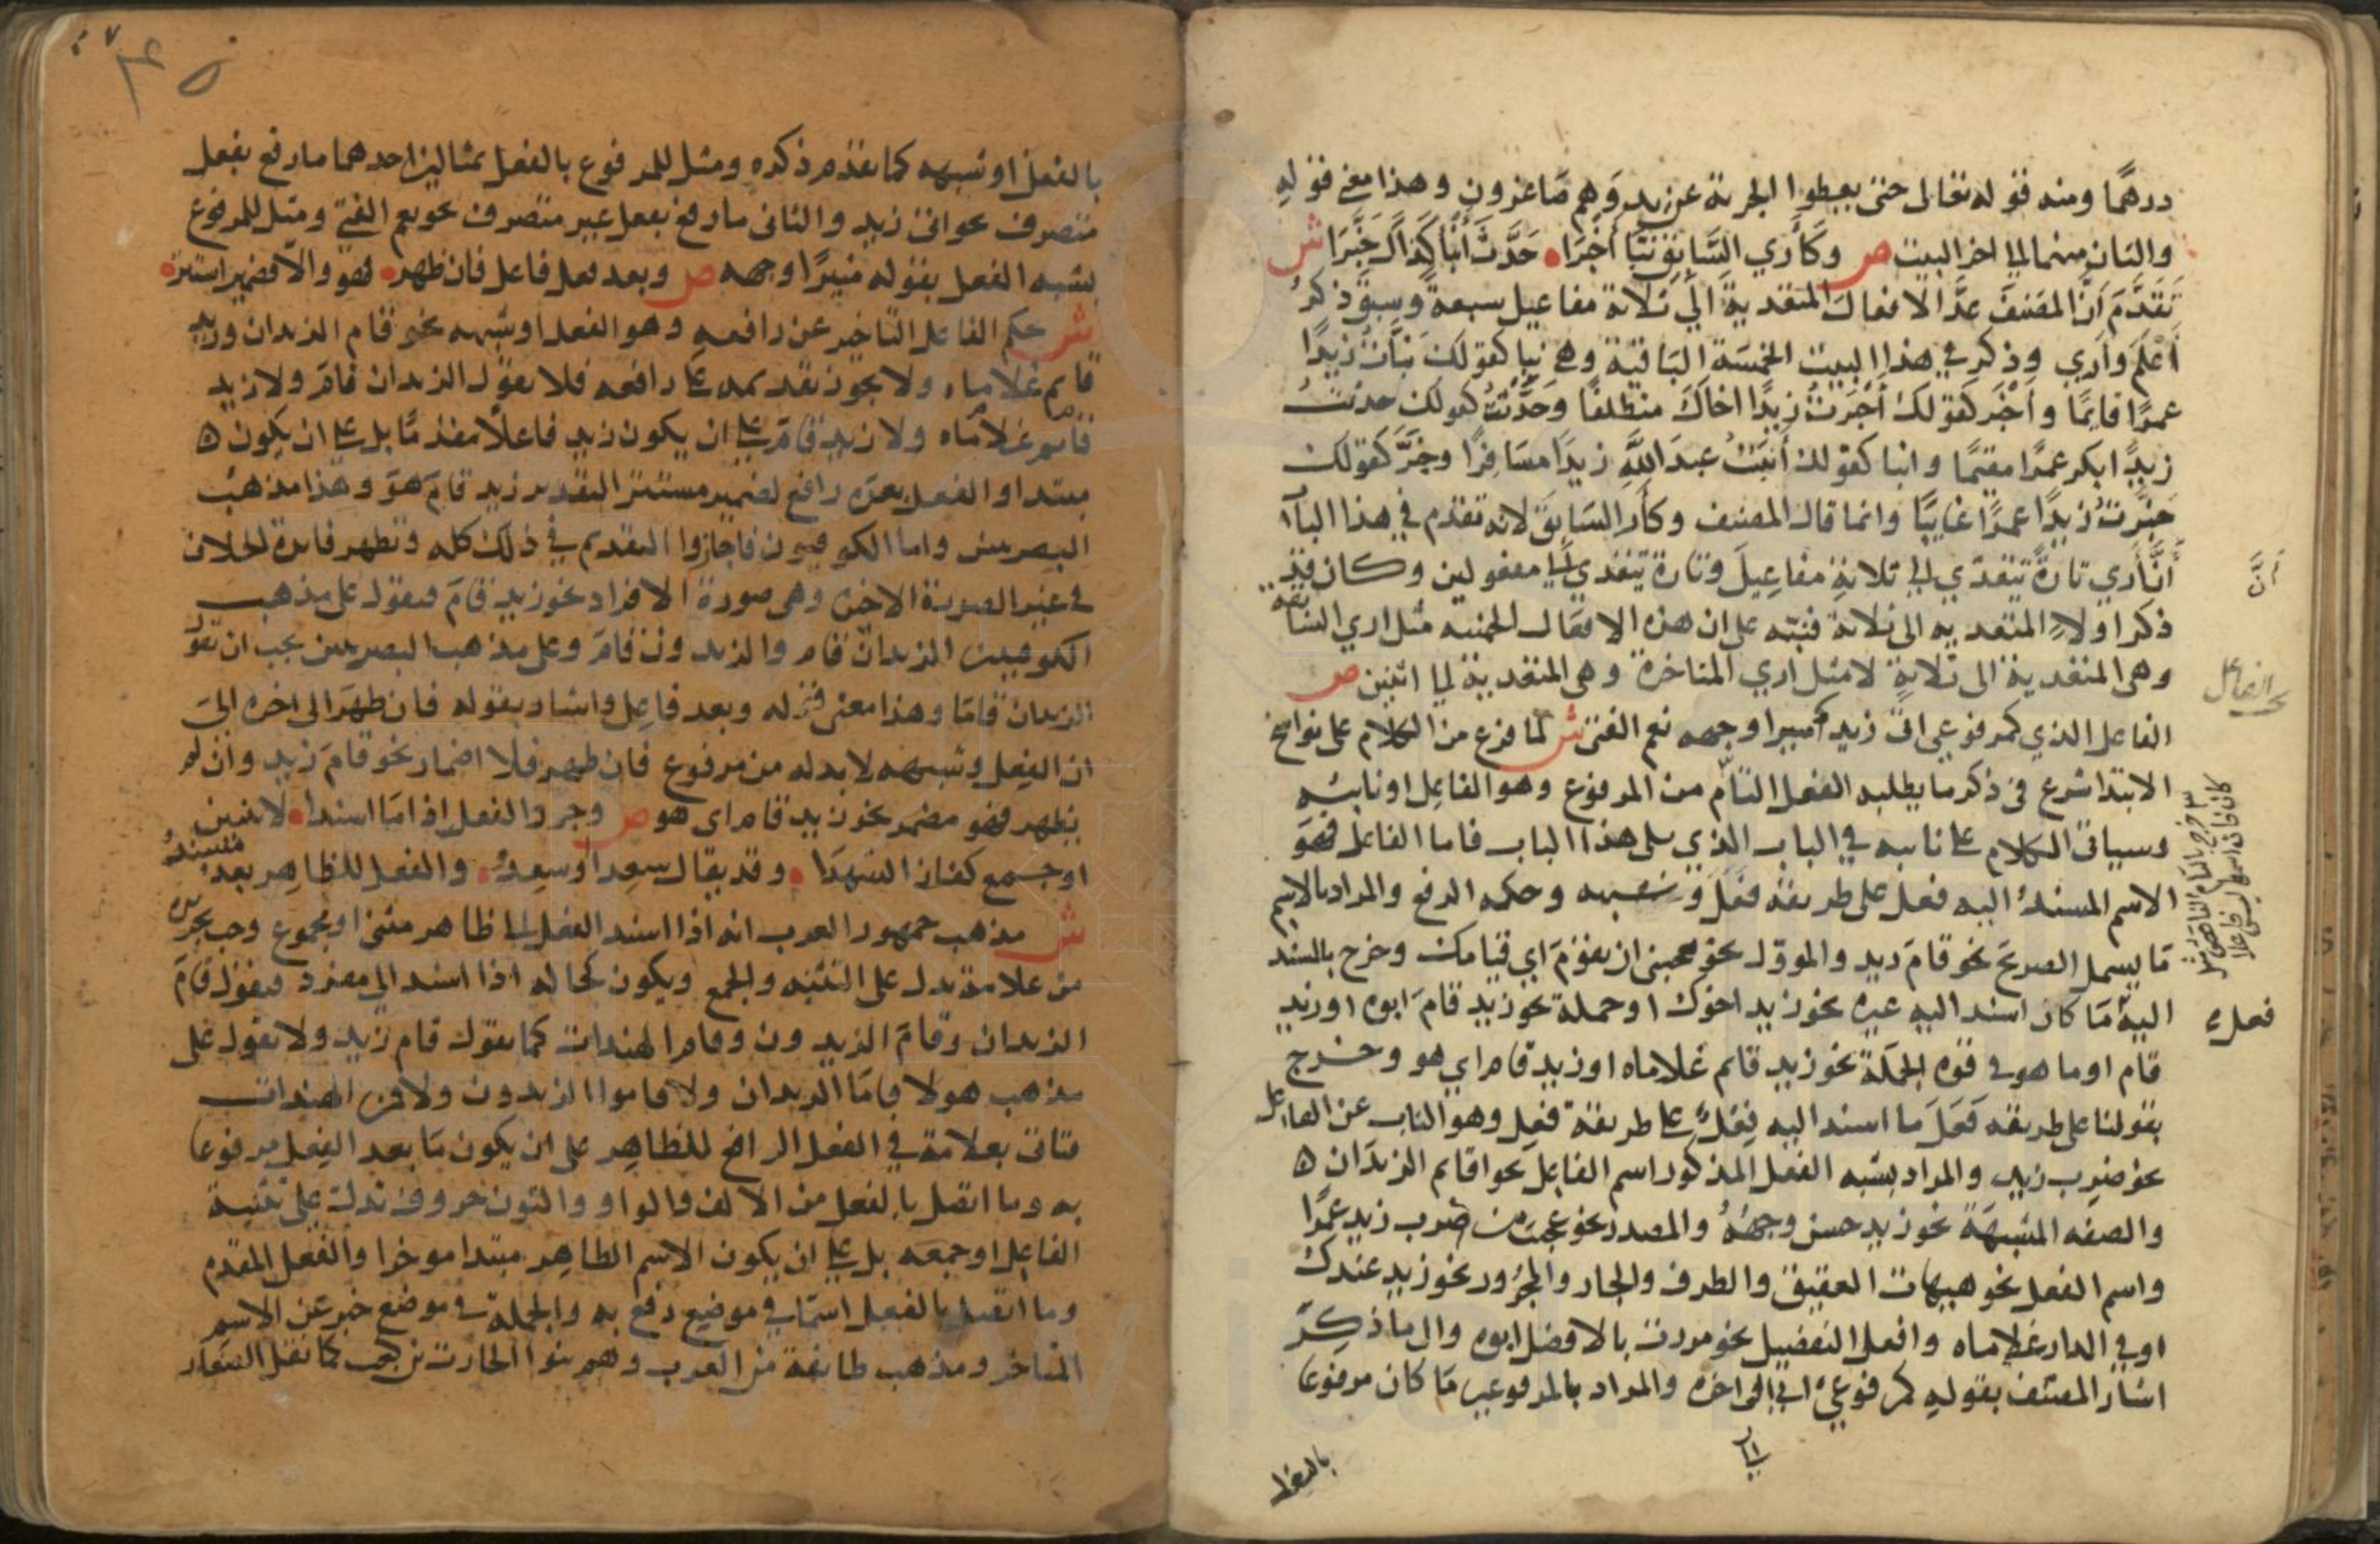 درهما ومنه قوله تعالى حتى يعطوا الجزية عن يد وهم صاغرون وهذا معنى قوله
والثان منهما الى اخر البيت ص وكأري السابق نبا أخبرا حدث أنبا كذاك خبرا ش
تقدم أن المصنف عد الافعال المتعدية الى ثلاثة مفاعيل سبعة وسبق ذكر
أعلم وأري وذكر في هذا البيت الخمسة الباقية وهي نبا كقولك نبأت زيدا
عمرا قايما وأخبر كقولك أخبرت زيدا اخاك منطلقا وحدث كقولك حدثت
زيدا ابكر عمرا مقيما وانبا كقولك أنبئت عبد الله زيدا مسافرا وخبر كقولك
خبرت زيدا عمرا غايبا وانما قال المصنف وكأرى السابق لانه تقدم في هذا الباب
أن أري تارة تتعدي الى ثلاثة مفاعيل وتارة تتعدي الى مفعولين وكان قد
ذكر اولا المتعدية الى ثلاثة فنبه على ان هذه الافعال الخمسة مثل اري السابقة
وهى المتعدية الى ثلاثة لا مثل اري المتاخرة وهى المتعدية الى اثنين ص
الفاعل الذي كمرفوعي اتى زيد منيرا وجهه نعم الفتى ش لما فرغ من الكلام على نواسخ
الابتدا شرع فى ذكر ما يطلبه الفعل التام من المرفوع وهو الفاعل او نائبه
وسياتى الكلام على نائبه في الباب الذي يلى هذا الباب فاما الفاعل فهو
الاسم المسند اليه فعل على طريقة فعل وشبهه وحكمه الرفع والمراد بالاسم
ما يشمل الصريح نحو قام زيد والمؤول نحو يعجبنى ان يقوم اي قيامك وخرج بالمسند
اليه ما كان اسند اليه غيره نحو زيد اخوك او جملة نحو زيد قام ابوه او زيد
قام او ما هو فى قوة الجملة نحو زيد قائم غلاماه او زيد قام اي هو وخرج
بقولنا على طريقة فعل ما اسند اليه فعل على طريقة فعل وهو النايب عن الفاعل
نحو ضرب زيد والمراد بشبه الفعل المذكور اسم الفاعل نحو اقائم الزيدان ه
والصفه المشبهة نحو زيد حسن وجهه والمصدر نحو عجبت من ضرب زيد عمرا
واسم الفعل نحو هيهات العقيق والظرف والجار والمجرور نحو زيد عندك
او في الدار غلاماه وافعل التفضيل نحو مررت بالافضل ابوه والى ما ذكر
اشار المصنف بقوله كمرفوعي اتى الى اخره والمراد بالمرفوعين ما كان مرفوعا
بالفعل
الفاعل
فعله
بالفعل او شبهه كما تقدم ذكره ومثل للمرفوع بالفعل بمثالين احدهما ما رفع بفعل
متصرف نحو اتى زيد والثانى ما رفع بفعل غير متصرف نحو نعم الفتى ومثل للمرفوع
بشبه الفعل بقوله منيرا وجهه ص وبعد فعل فاعل فان ظهر فهو والا فضمير استتر
ش حكم الفاعل التاخير عن رافعه وهو الفعل او شبهه نحو قام الزيدان وزيد
قائم غلاماه ولا يجوز تقديمه على رافعه فلا تقول الزيدان قام ولا زيد
غلاماه قائم ولا زيد قام على ان يكون زيد فاعلا مقدما بل على ان يكون ه
مبتدا والفعل بعده رافع لضمير مستتر التقدير زيد قام هو وهذا مذهب
البصريين واما الكوفيون فاجازوا التقديم في ذلك كله وتظهر فايدة الخلاف
فى غير الصورة الاخيرة وهى صورة الافراد نحو زيد قام فتقول على مذهب
الكوفيين الزيدان قام والزيدون قام وعلى مذهب البصريين يجب ان تقول
الزيدان قاما وهذا معنى قوله وبعد فاعل واشار بقوله فان ظهر الى اخره الى
ان الفعل وشبهه لا بد له من مرفوع فان ظهر فلا اضمار نحو قام زيد وان لم
يظهر فهو مضمر نحو زيد قام اى هو ص وجرد الفعل اذا ما اسندا لاثنين
او جمع كفاز الشهدا وقد يقال سعدا وسعدوا والفعل للظاهر بعد مسند
ش مذهب جمهور العرب انه اذا اسند الفعل الى ظاهر مثنى او مجموع وجب تجريده
من علامة تدل على التثنية والجمع ويكون كحاله اذا اسند الى مفرد فتقول قام
الزيدان وقام الزيدون وقام الهندات كما تقول قام زيد ولا تقول على
مذهب هولا قاما الزيدان ولا قاموا الزيدون ولا قمن الهندات
فتاتى بعلامة في الفعل الرافع للظاهر على ان يكون ما بعد الفعل مرفوعا
به وما اتصل بالفعل من الالف والواو والنون حروف تدل على تثنية
الفاعل او جمعه بل على ان يكون الاسم الظاهر مبتدا موخرا والفعل المقدم
وما اتصل بالفعل اسما في موضع رفع به والجملة فى موضع خبر عن الاسم
المتاخر ومذهب طائفة من العرب وهم بنوا الحارث بن كعب كما نقل الصفار